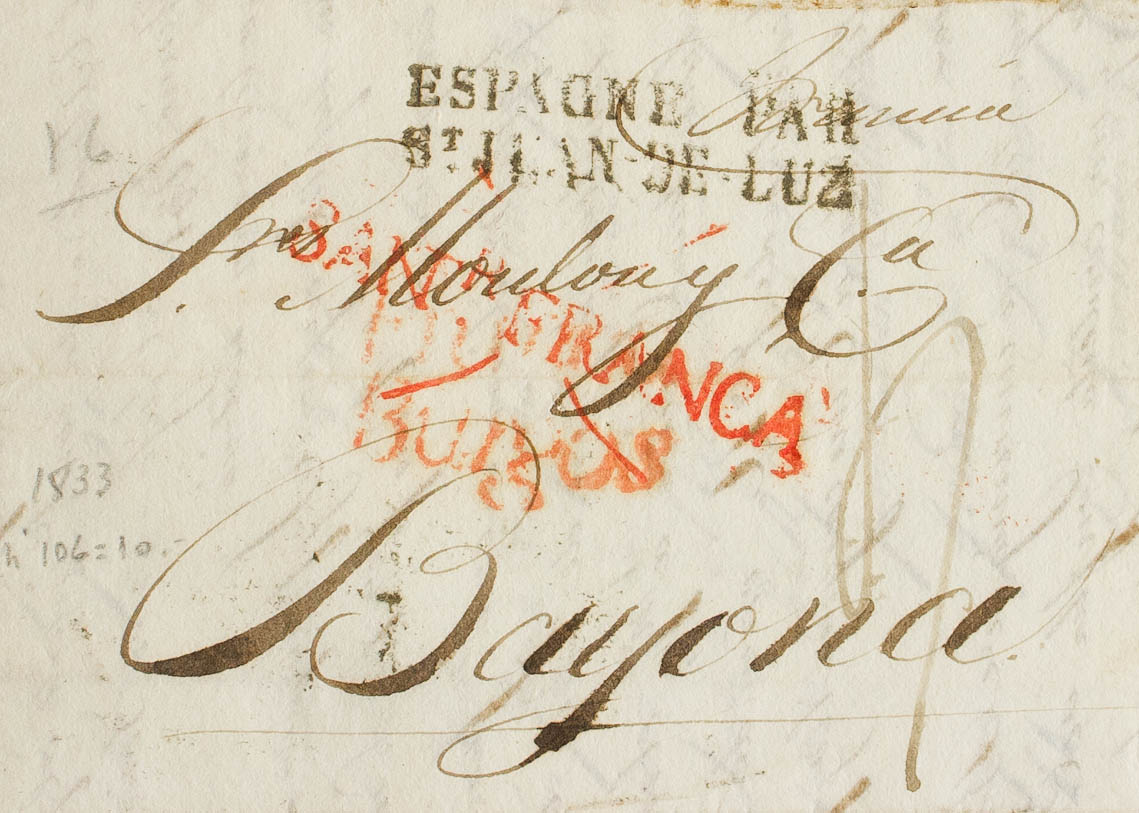 Francia
ESPAGNE PAR
ST JEAN-DE-LUZ
Y6
Sres Moulon y Ca
FRANCA
BURGOS
1833
106=10.-
Bayona